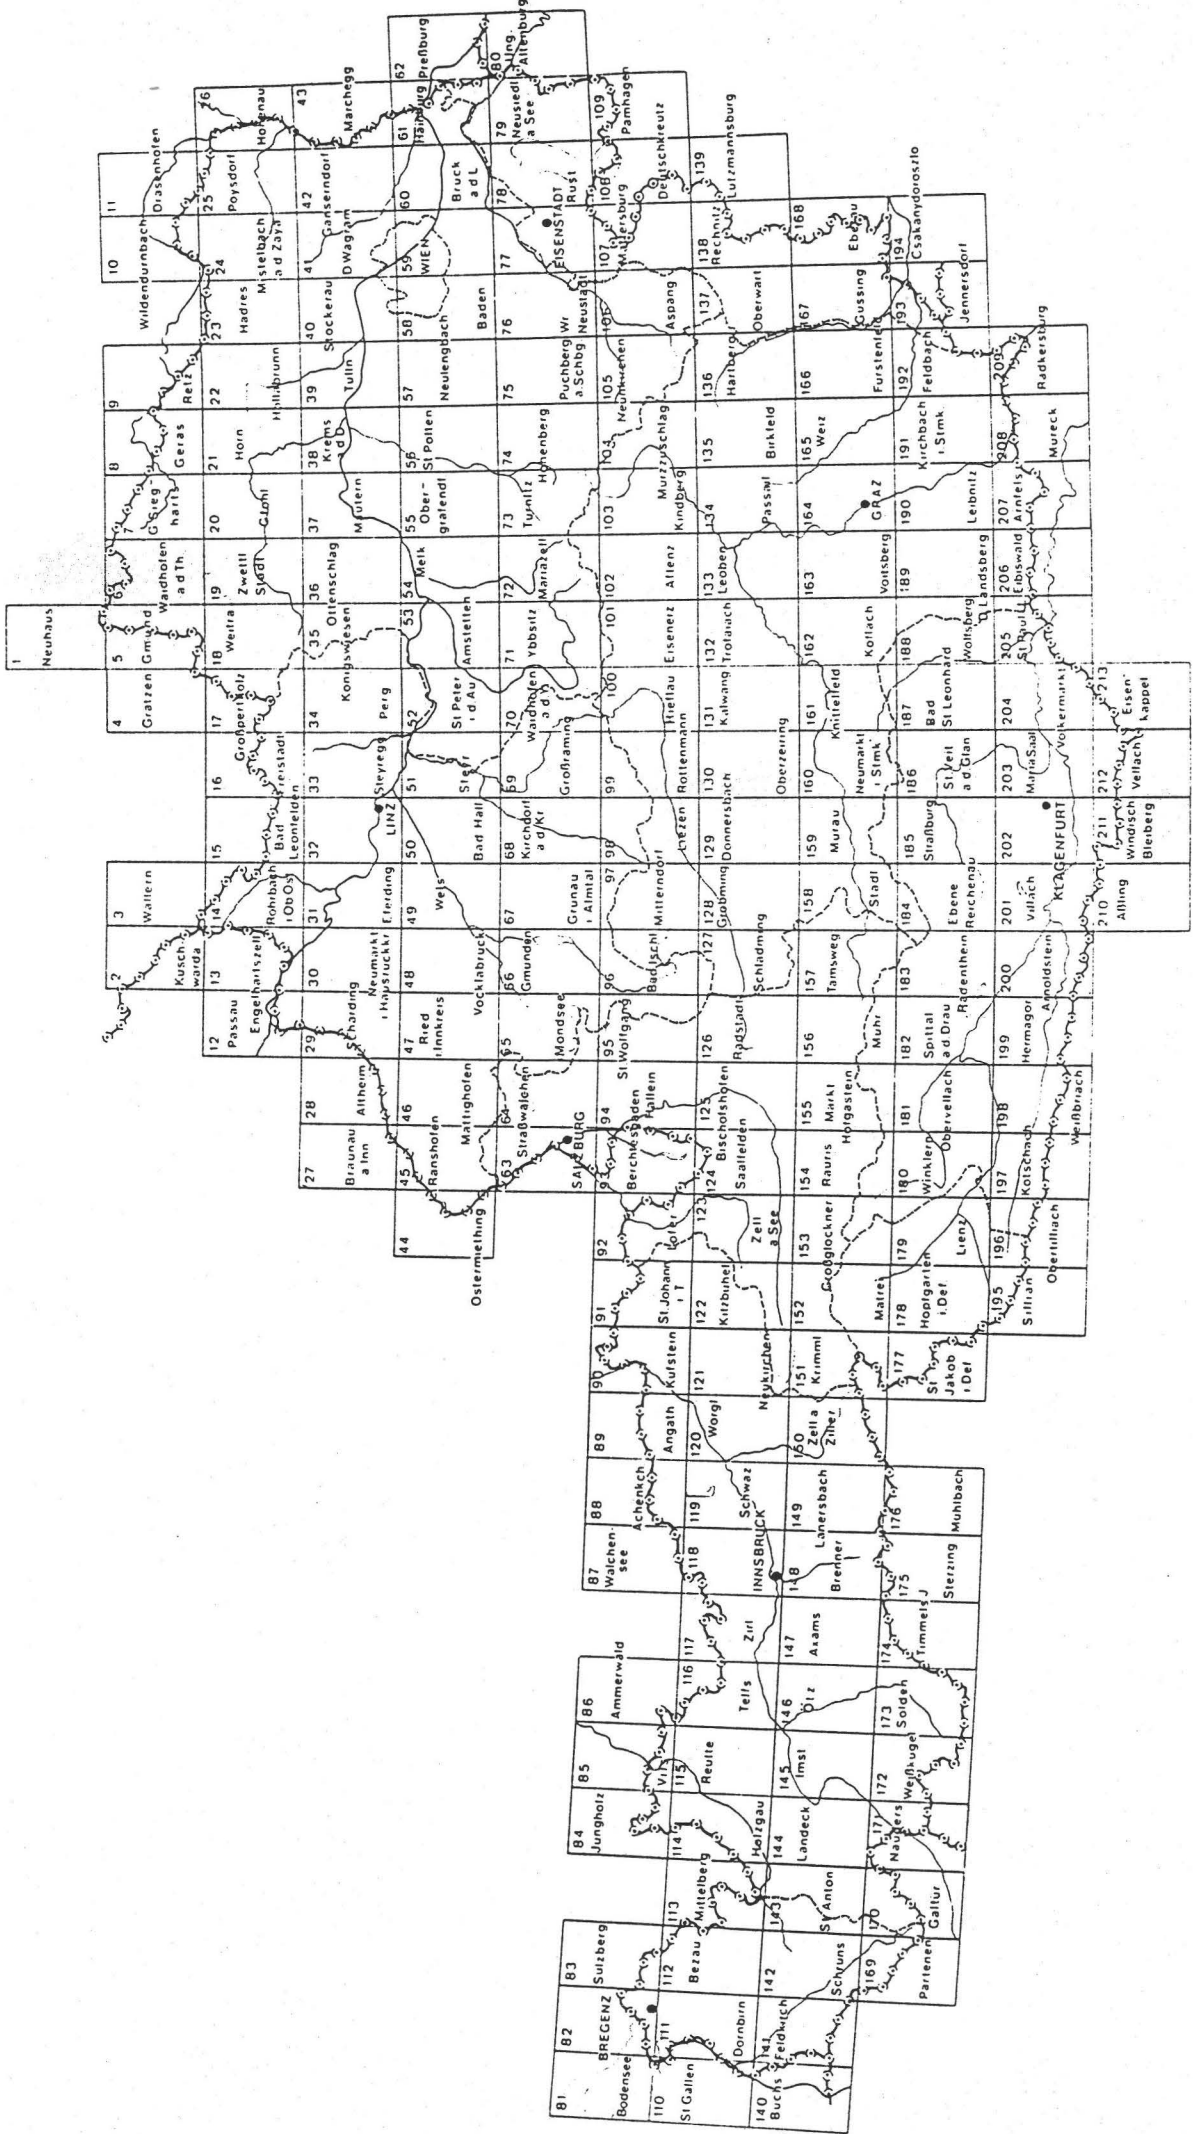 1
Neuhaus
2
Kusch
warda
3
Wallern
4
Gratzen
5
Gmünd
6
Waidhofen
a d Th
7
G Sieg
harts
8
Geras
9
Retz
10
Wildendürnbach
11
Drasenhofen
12
Passau
13
Engelhartszell
14
Rohrbach
i ObÖst
15
Bad
Leonfelden
16
Freistadt
17
Großpertholz
18
Weitra
19
Zwettl
Stadt
20
Gföhl
21
Horn
22
Hollabrunn
23
Hadres
24
Mistelbach
a d Zaya
25
Poysdorf
26
Hohenau
27
Braunau
a Inn
28
Altheim
29
Schärding
30
Neumarkt
i Hausruckkr
31
Eferding
32
LINZ
33
Steyregg
34
Perg
35
Königswiesen
36
Ottenschlag
37
Mautern
38
Krems
a d D
39
Tulln
40
Stockerau
41
D Wagram
42
Gänserndorf
43
Marchegg
44
Ostermiething
45
Ranshofen
46
Mattighofen
47
Ried
i Innkreis
48
Vöcklabruck
49
Wels
50
Bad Hall
51
Steyr
52
St Peter
i d Au
53
Amstetten
54
Melk
55
Ober-
grafendf
56
St Pölten
57
Neulengbach
58
Baden
59
WIEN
60
Bruck
a d L
61
Hainburg
62
Preßburg
63
SALZBURG
64
Straßwalchen
65
Mondsee
66
Gmunden
67
Grünau
i Almtal
68
Kirchdorf
a d Kr
69
Großraming
70
Waidhofen
a d Y
71
Ybbsitz
72
Mariazell
73
Türnitz
74
Hohenberg
75
Puchberg
a Schbg
76
Wr
Neustadt
77
EISENSTADT
78
Rust
79
Neusiedl
a See
80
Ung.
Altenburg
81
Bodensee
82
BREGENZ
83
Sulzberg
84
Jungholz
85
Vils
86
Ammerwald
87
Walchen-
see
88
Achenkch
89
Angath
90
Kufstein
91
St. Johann
i T
92
Lofer
93
Berchtesgaden
94
Hallein
95
St Wolfgang
96
Bad Ischl
97
Mitterndorf
98
Liezen
99
Rottenmann
100
Hieflau
101
Eisenerz
102
Aflenz
103
Kindberg
104
Mürzzuschlag
105
Neunkirchen
106
Aspang
107
Mattersburg
108
Deutschkreutz
109
Pamhagen
110
St Gallen
111
Dornbirn
112
Bezau
113
Mittelberg
114
Holzgau
115
Reutte
116
Telfs
117
Zirl
118
INNSBRUCK
119
Schwaz
120
Wörgl
121
Neukirchen
122
Kitzbühel
123
Zell
a See
124
Saalfelden
125
Bischofshofen
126
Radstadt
127
Schladming
128
Gröbming
129
Donnersbach
130
Oberzeiring
131
Kalwang
132
Trofaiach
133
Leoben
134
Passail
135
Birkfeld
136
Hartberg
137
Oberwart
138
Rechnitz
139
Lutzmannsburg
140
Buchs
141
Feldkirch
142
Schruns
143
St Anton
144
Landeck
145
Imst
146
Ötz
147
Axams
148
Brenner
149
Lanersbach
150
Zell a
Ziller
151
Krimml
152
Matrei
153
Großglockner
154
Rauris
155
Markt
Hofgastein
156
Muhr
157
Tamsweg
158
Stadl
159
Murau
160
Neumarkt
i Stmk
161
Knittelfeld
162
Köflach
163
Voitsberg
164
GRAZ
165
Weiz
166
Fürstenfeld
167
Güssing
168
Eberau
169
Partenen
170
Galtür
171
Nauders
172
Weißkugel
173
Sölden
174
Timmels J
175
Sterzing
176
Mühlbach
177
St
Jakob
i Def
178
Hopfgarten
i. Def
179
Lienz
180
Winklern
181
Obervellach
182
Spittal
a d Drau
183
Radenthein
184
Ebene
Reichenau
185
Straßburg
186
St Veit
a d Glan
187
Bad
St Leonhard
188
Wolfsberg
189
D Landsberg
190
Leibnitz
191
Kirchbach
i Stmk.
192
Feldbach
193
Jennersdorf
194
Csakanydoroszlo
195
Sillian
196
Obertilliach
197
Kötschach
198
Weißbriach
199
Hermagor
200
Arnoldstein
201
Villach
202
KLAGENFURT
203
Maria Saal
204
Völkermarkt
205
St Paul i L
206
Eibiswald
207
Arnfels
208
Mureck
209
Radkersburg
210
Aßling
211
Windisch
Bleiberg
212
Vellach
213
Eisen-
kappel